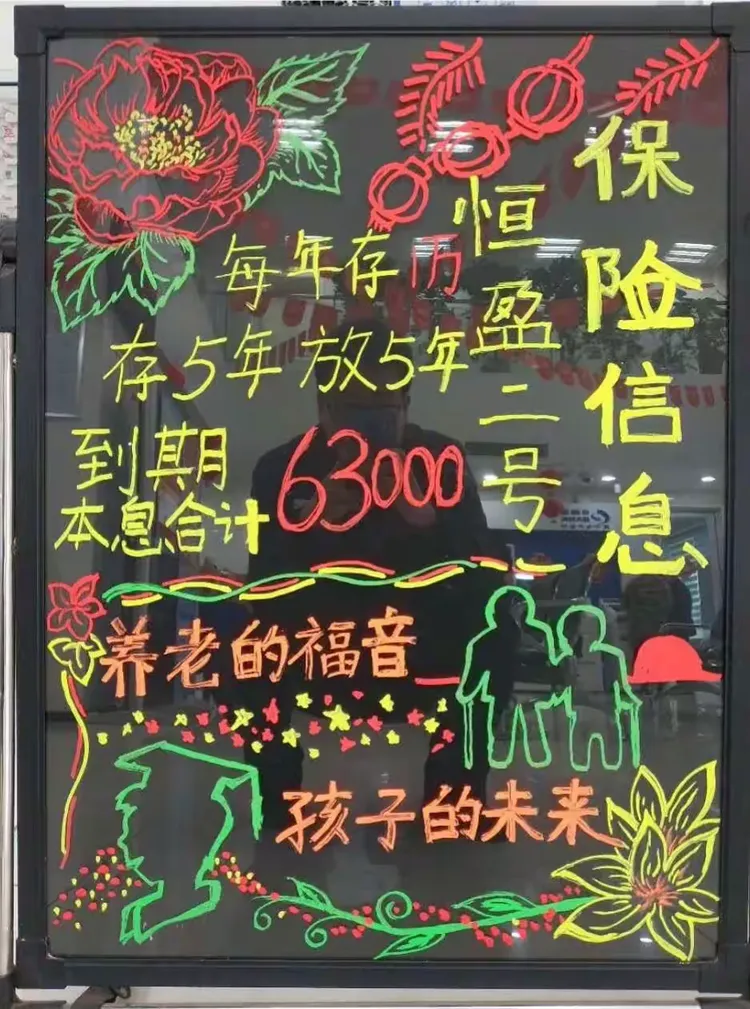 保险信息
恒盈二号
每年存万
存5年放5年
到期
本息合计63000
养老的福音
孩子的未来